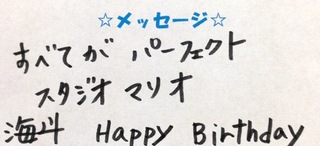 ☆メッセージ☆
すべてが パーフェクト
スタジオ マリオ
海斗 Happy Birthday